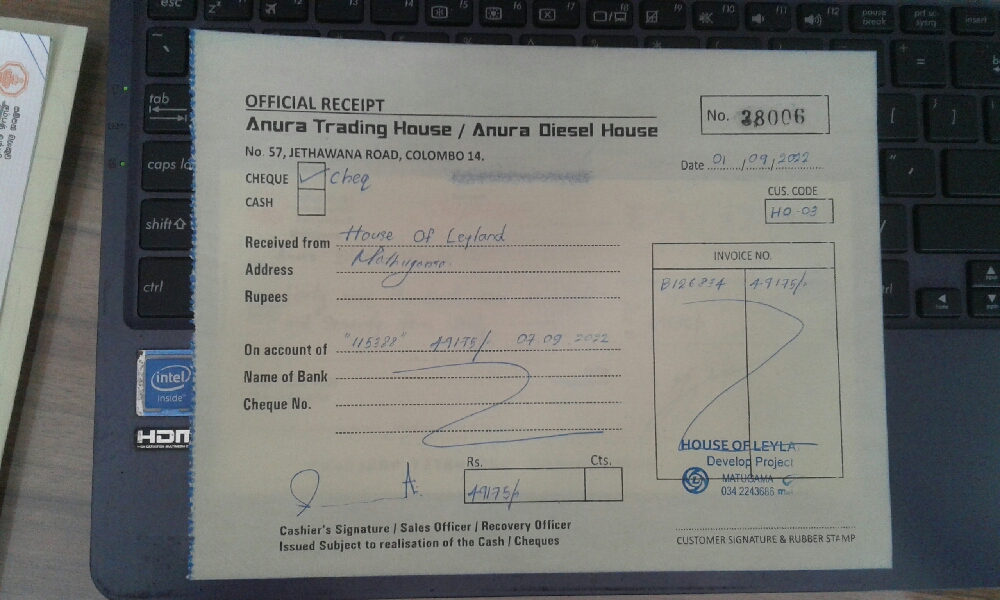 OFFICIAL RECEIPT
Anura Trading House / Anura Diesel House
No. 57, JETHAWANA ROAD, COLOMBO 14.
No. 38006
Date 01/09/2022
CHEQUE ✓ Cheq
CASH
CUS. CODE
HO-03
Received from House Of Leyland
Address Mathugama
Rupees
INVOICE NO.
B126834 49175/-
On account of "115388" 49175/- 07.09.2022
Name of Bank
Cheque No.
Rs. Cts.
49175/-
HOUSE OF LEYLA
Develop Project
MATUGAMA
034 2243666
Cashier's Signature / Sales Officer / Recovery Officer
Issued Subject to realisation of the Cash / Cheques
CUSTOMER SIGNATURE & RUBBER STAMP
esc
f2
f4
f5
f6
f7
f8
f9
f10
f11
f12
pause break
prt sc sysrq
insert
tab
caps lo
shift
ctrl
intel
inside
HDM